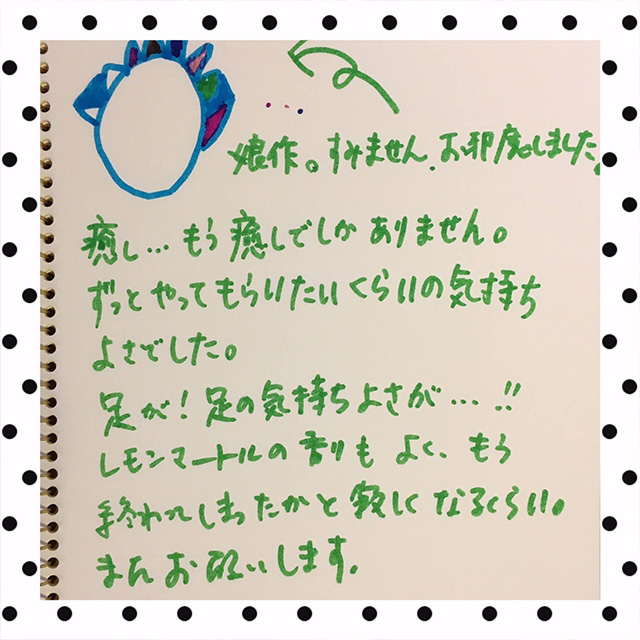 娘作。すみません、お邪魔しました。
癒し…もう癒しでしかありません。
ずっとやってもらいたいくらいの気持ち
よさでした。
足が!足の気持ちよさが…!!
レモンマートルの香りもよく、もう
終わってしまったかと寂しくなるくらい。
またお願いします。